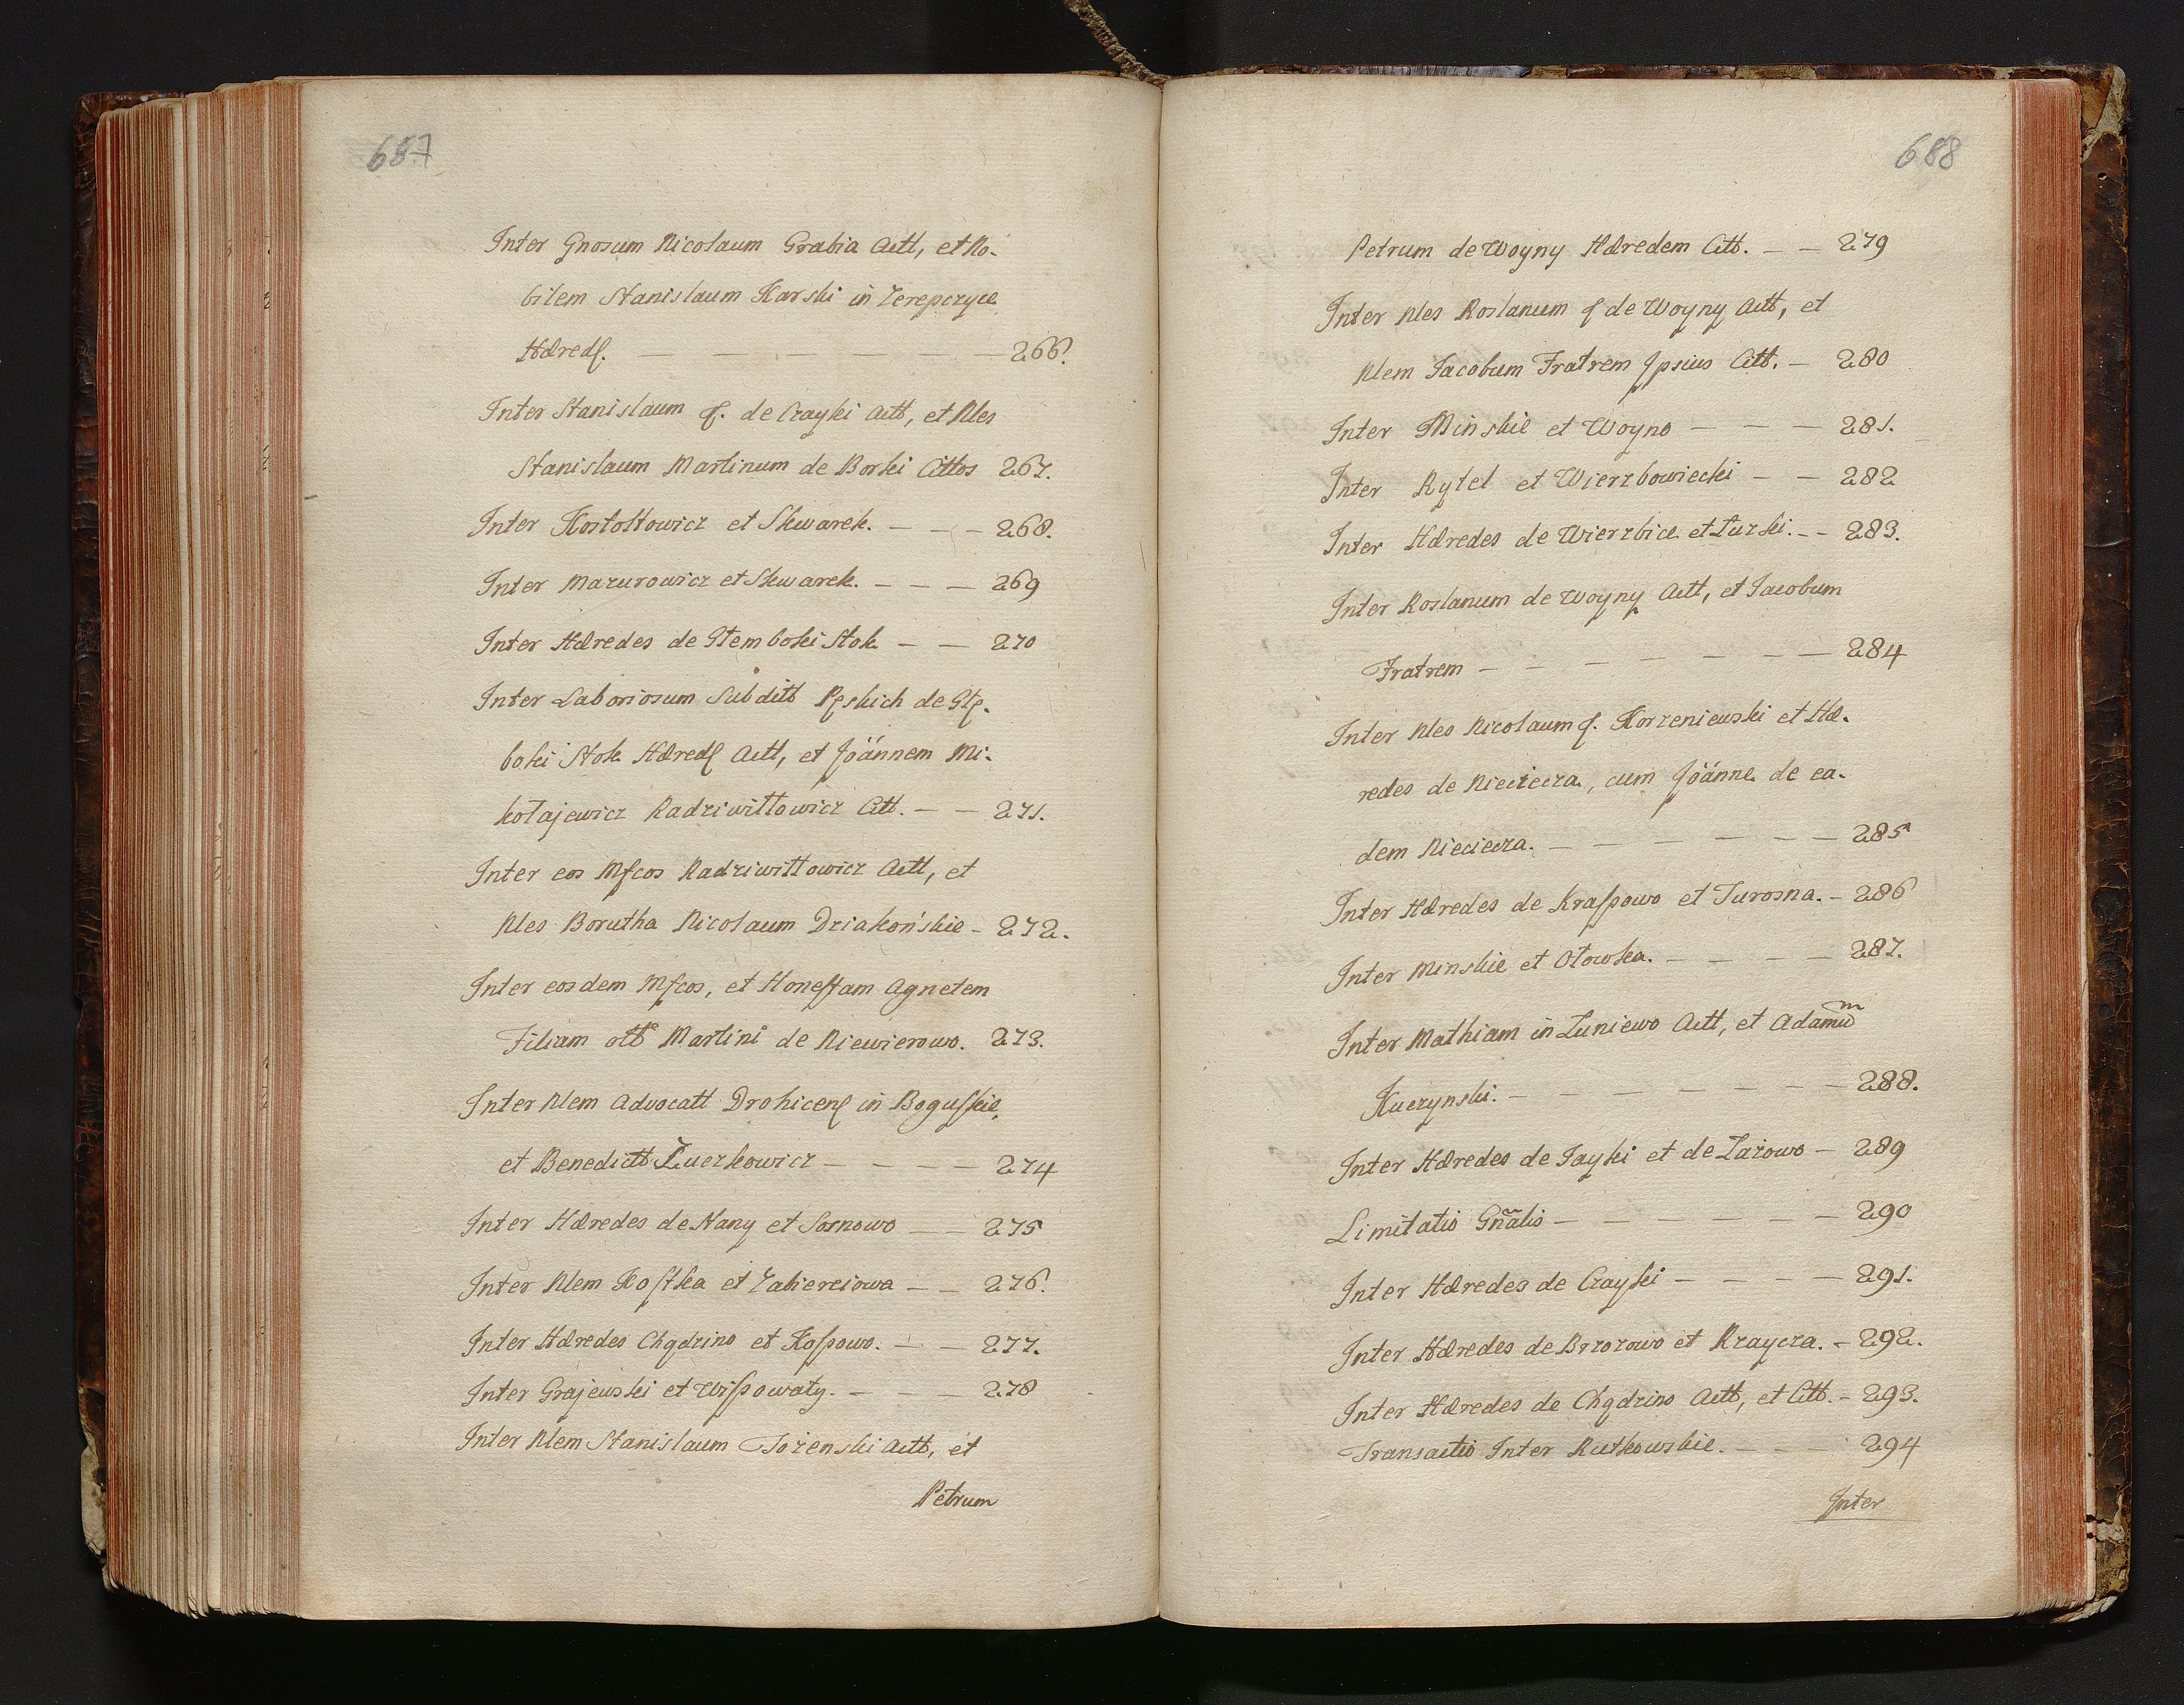 687
Inter Gnosum Nicolaum Grabia Actt, et No-
bilem Stanislaum Karski in Czerepczyce
Hæredę. — — — — — 266.
Inter Stanislaum ę. de Czayki Actt, et Nles
Stanislaum Martinum de Borki Cittos 267.
Inter Kostołtowicz et Skwarek. — — — 268.
Inter Mazurowicz et Skwarek. — — — 269
Inter Hæredes de Głemboki Stok — — 270
Inter Laboriosum Subditt Pęskich de Głę-
boki Stok Hæredę Actt, et Joánnem Mi-
kołajewicz Radziwiłłowicz Citt. — — 271.
Inter eos Mfcos Radziwiłłowicz Actt, et
Nles Borutha Nicolaum Dziakońskie — 272.
Inter eosdem Mfcos, et Honestam Agnetem
Filiam ott Martini de Niewierowo. 273.
Inter Nlem Advocatt Drohicenę in Boguskie,
et Benedictt Zuczkowicz — — — — 274
Inter Hæredes de Nany et Sosnowo — — 275
Inter Nlem Kostka et Zabierciowa — — 276.
Inter Hæredes Chądzino et Kossowo. — — 277.
Inter Grajewski et Wissowaty. — — — 278
Inter Nlem Stanislaum Tożenski Actt, et
Petrum
688
Petrum de Woyny Hæredem Citt. — — 279
Inter Nles Roslanum ę de Woyny Actt, et
Nlem Jacobum Fratrem Ipsius Citt. — 280
Inter Minskie et Woyno — — — 281.
Inter Rytel et Wierzbowiecki — — 282
Inter Hæredes de Wierzbice et Łuzki. — — 283.
Inter Roslanum de Woyny Actt, et Jacobum
Fratrem — — — — — — — 284
Inter Nles Nicolaum ę. Korzeniewski et Hæ-
redes de Nieciecza, cum Joánne de ea-
dem Nieciecza. — — — — — — 285
Inter Hæredes de Krassowo et Turosna. — 286
Inter Minskie et Otowka. — — — — 287.
Inter Mathiam in Łuniewo Actt, et Adamum
Kuczynski. — — — — — — — 288.
Inter Hæredes de Jayki et de Łazowo — 289
Limitatio Gñalis — — — — — — 290
Inter Hæredes de Czayki — — — — 291.
Inter Hæredes de Brzozowo et Rzaycza. — 292.
Inter Hæredes de Chądzino Actt, et Citt. — 293.
Transactio Inter Rutkowskie. — — 294
Inter